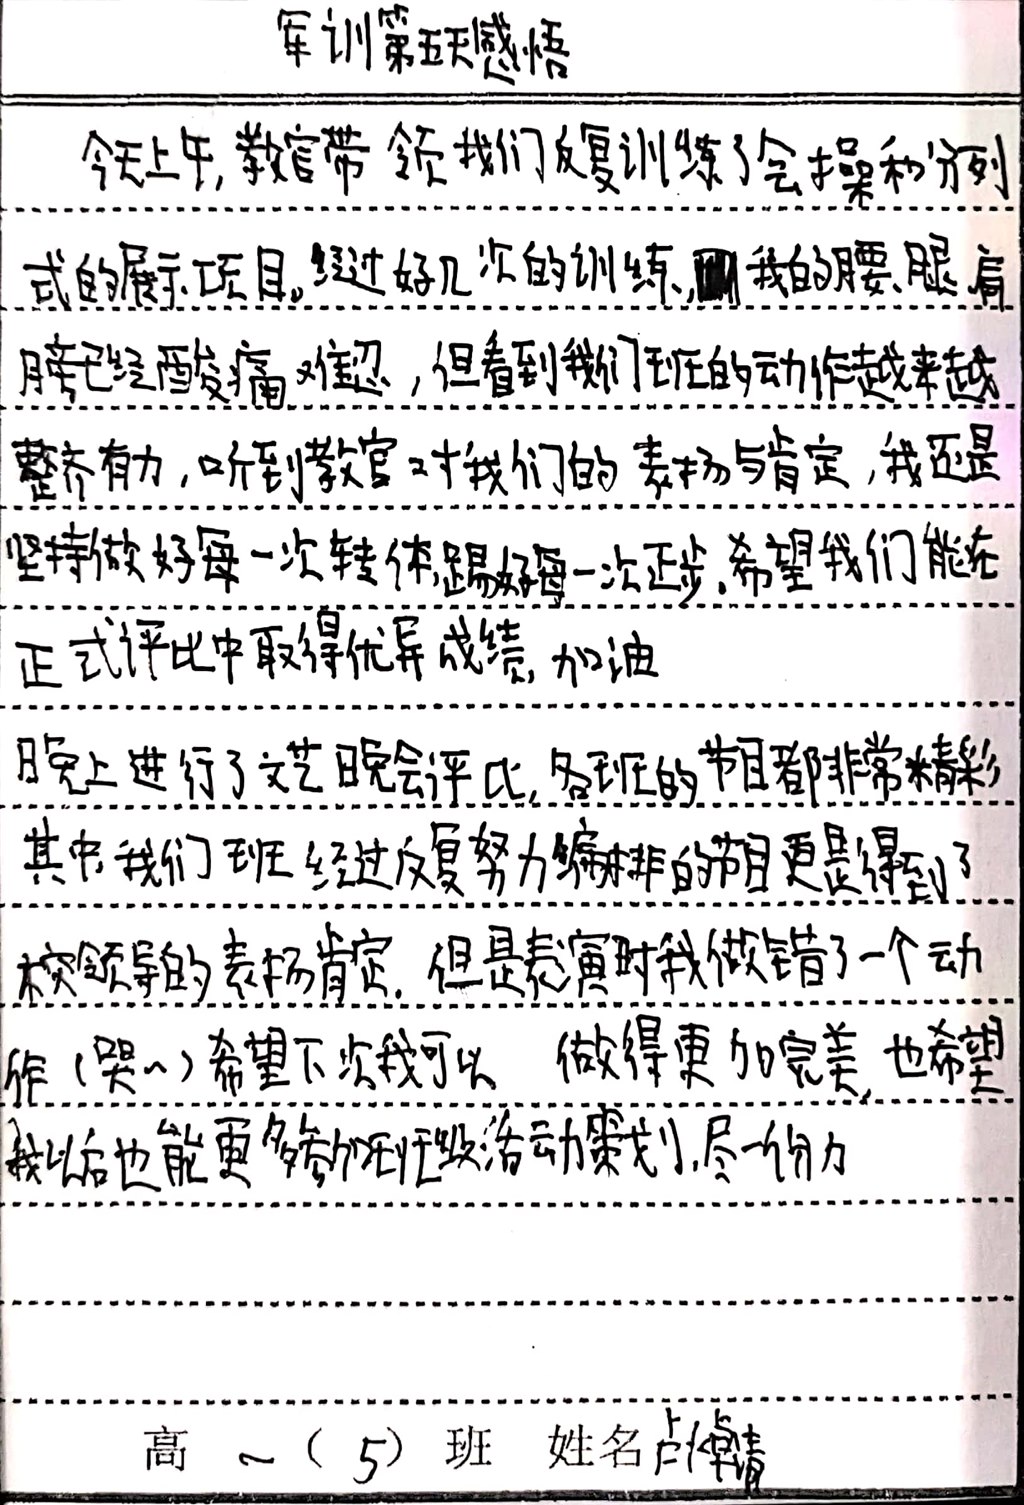 军训第五天感悟
今天上午,教官带领我们反复训练了会操和分列
式的展示项目。经过好几次的训练,我的腰、腿、肩
膀已经酸痛难忍,但看到我们班的动作越来越
整齐有力,听到教官对我们的表扬与肯定,我还是
坚持做好每一次转体,踢好每一次正步。希望我们能在
正式评比中取得优异成绩,加油
晚上进行了文艺晚会评比,各班的节目都非常精彩
其中,我们班经过反复努力编排的节目更是得到了
校领导的表扬肯定.但是表演时我做错了一个动
作(哭~)希望下次我可以做得更加完美,也希望
我以后也能更多参加到班级活动策划,尽一份力
高一(5)班 姓名卢倬清